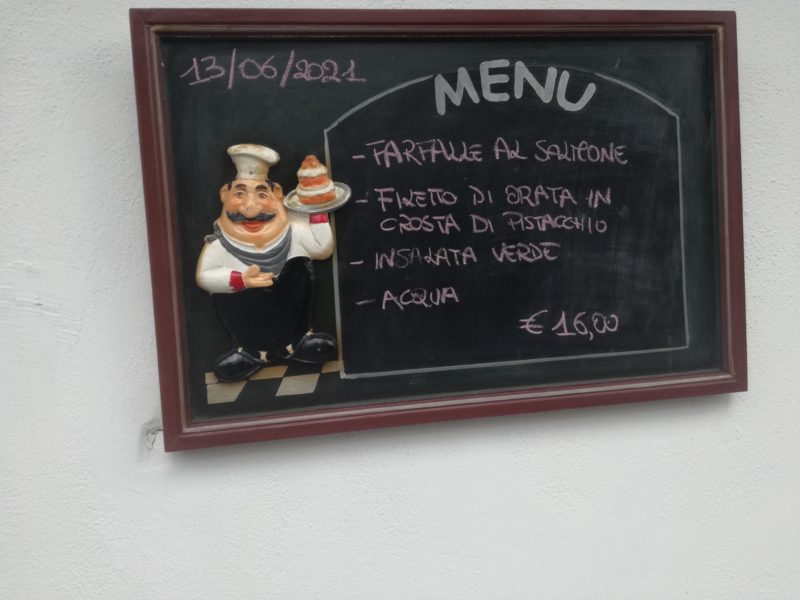 13/06/2021
MENU
- FARFALLE AL SALMONE
- FILETTO DI ORATA IN
CROSTA DI PISTACCHIO
- INSALATA VERDE
- ACQUA
€ 16,00